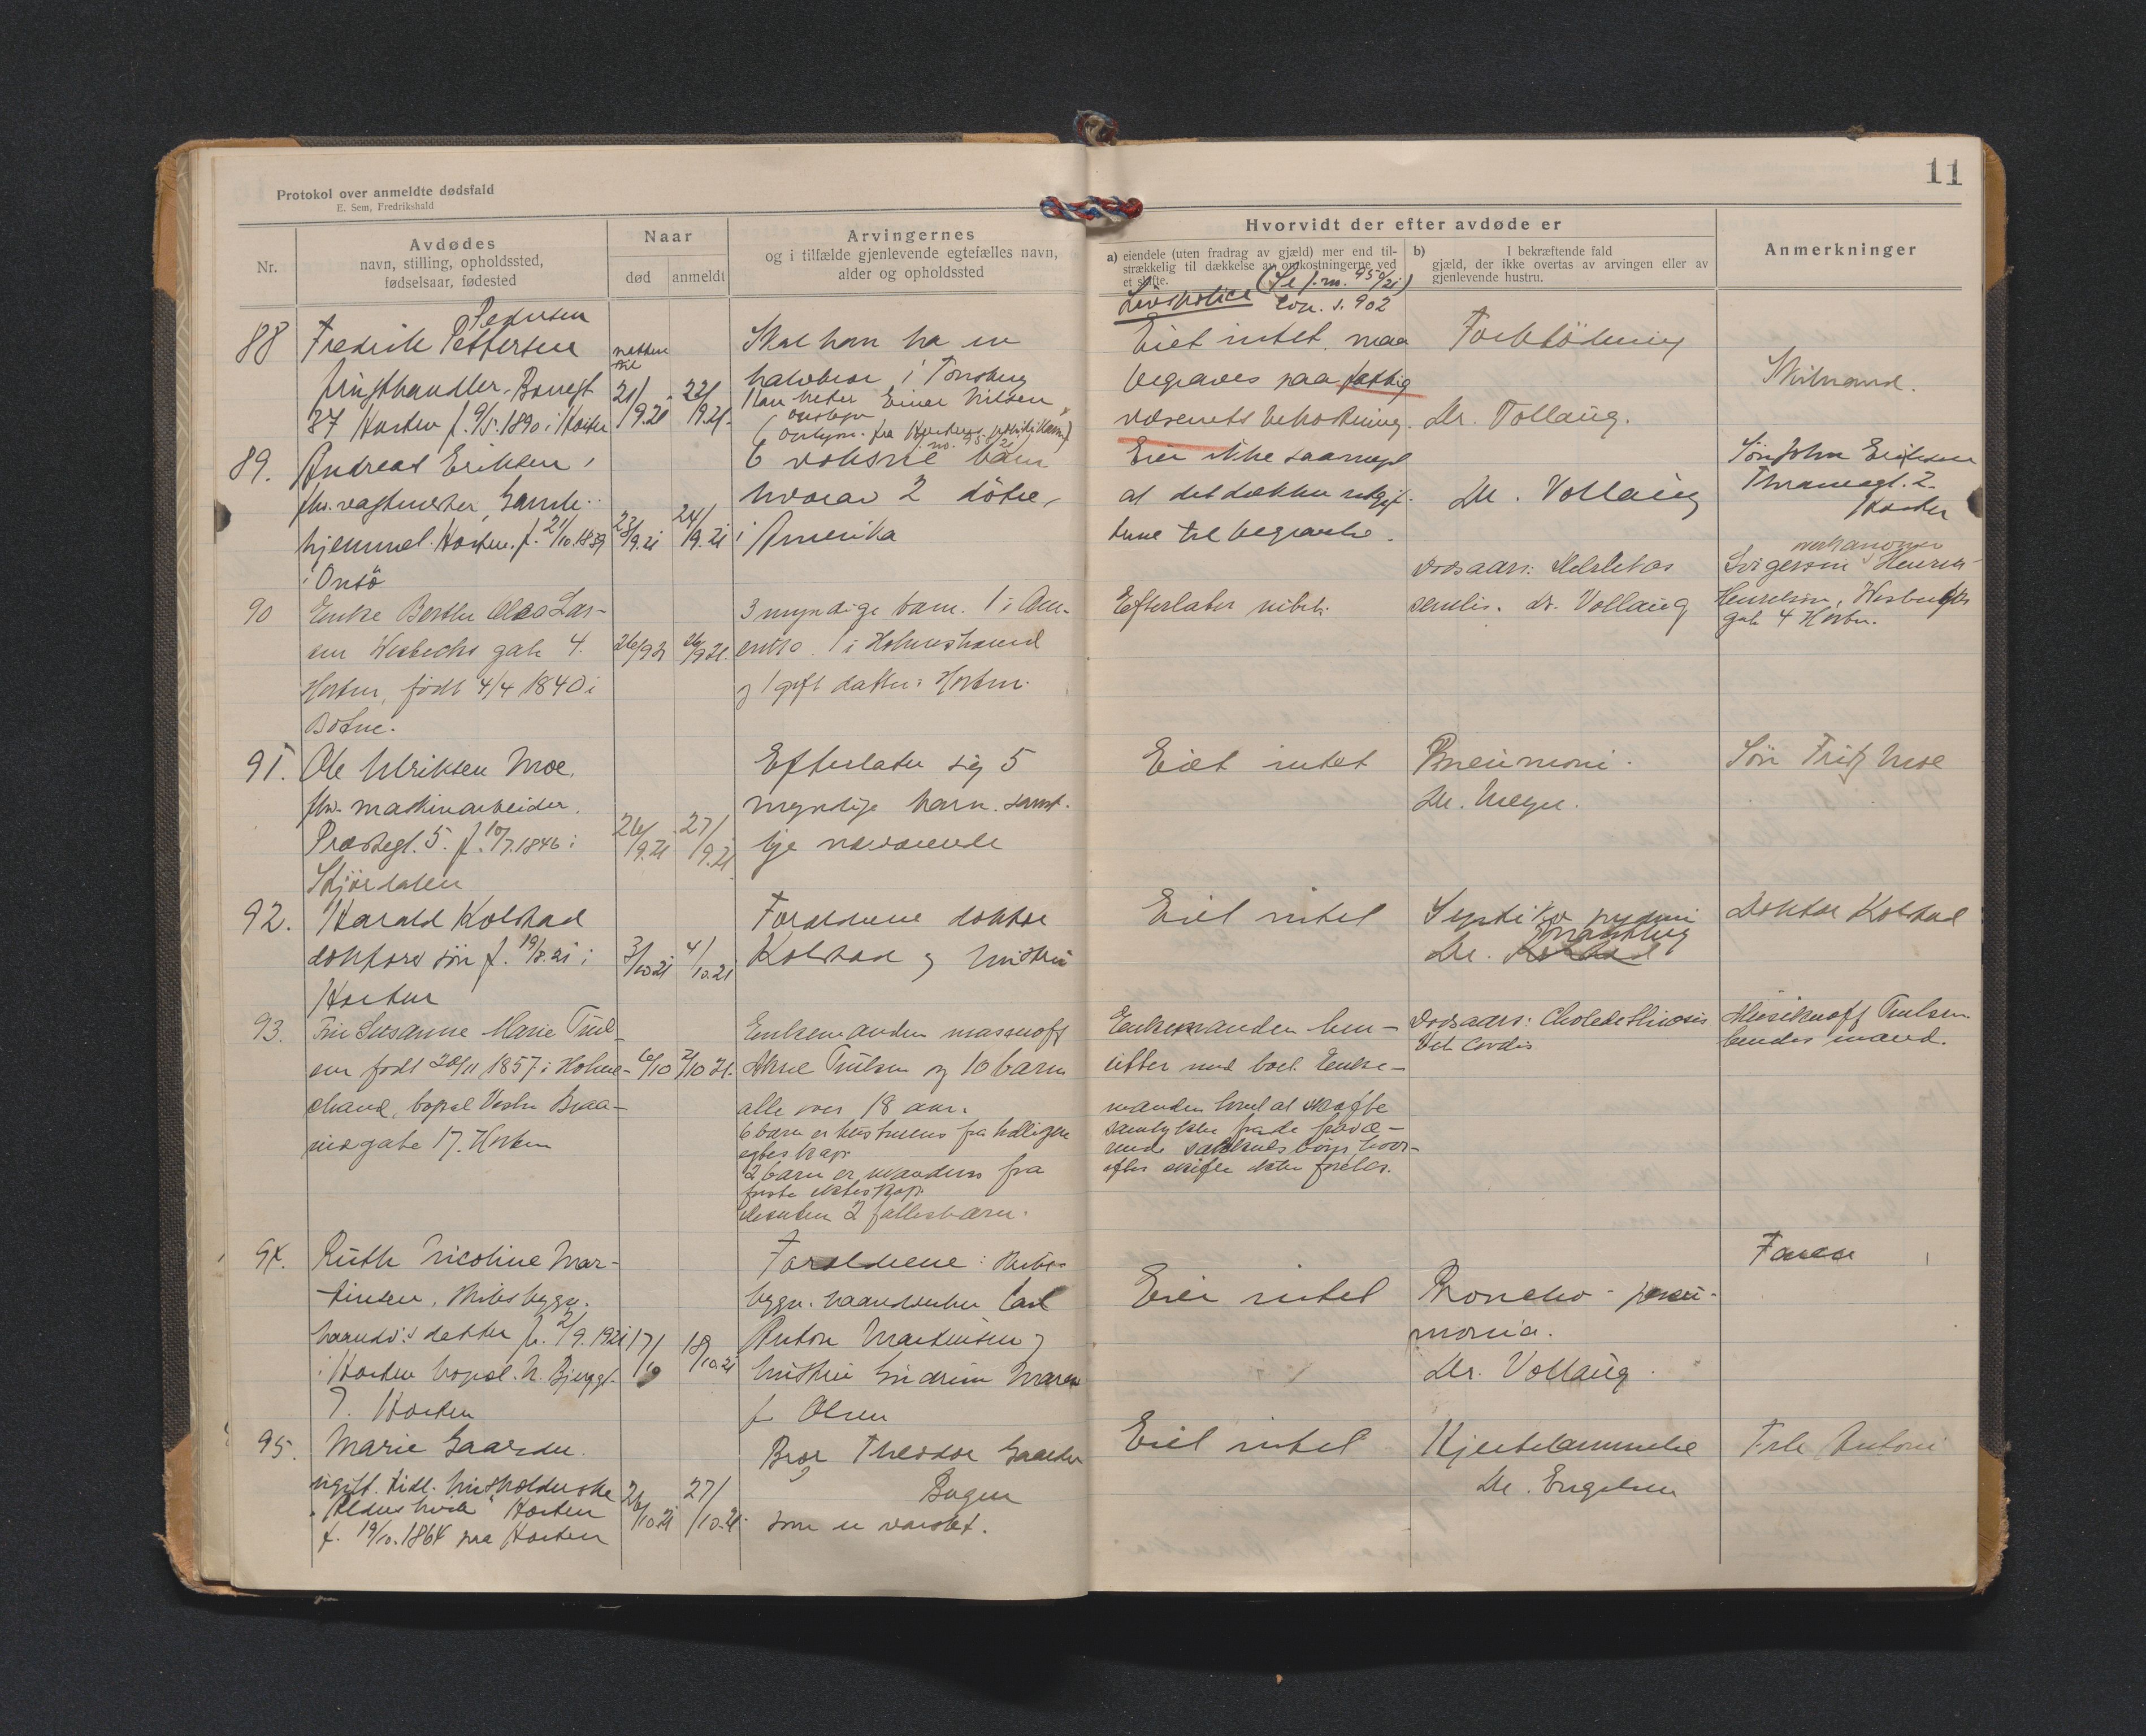 11
Protokol over anmeldte dødsfald
E. Sem, Fredrikshald
Nr.
Avdødes
navn, stilling, opholdssted,
fødselsaar, fødested
Naar
død
anmeldt
Arvingernes
og i tilfælde gjenlevende egtefælles navn,
alder og opholdssted
Hvorvidt der efter avdøde er
a) eiendele (uten fradrag av gjæld) mer end til-
strækkelig til dækkelse av omkostningerne ved
et skifte.
b) I bekræftende fald
gjæld, der ikke overtas av arvingen eller av
gjenlevende hustru.
Anmerkninger
88
Pedersen
Fredrik Pettersen
frugthandler, Borregt
37 Horten f. 9/5.1890 i Horten
natten til
21/9.21
22/9.21
Skal han ha en
halvbror i Tønsberg
Han heter Einar Nilsen
Eiet intet, maa
begraves paa fattig
væsenets bekostning.
Forblødning
Dr. Vollaug.
89.
Andreas Eriksen,
fhv. vagtmester, Gamle-
hjemmet. Horten. f. 21/10.1839
i Onsö
23/9.21
24/9.21
6 voksne barn
hvorav 2 døtre,
i Amerika
Eier ikke saameget
at det dækker utgif-
tene til begravelse.
Dr. Vollaug
Søn John Eriksen
Thranesgt. 2.
Horten
90
Enke Berthe Olea Lar-
sen Wesbechs gate 4.
Horten, født 4/4 1840 i
Botne.
26/9 21
26/9 21.
3 myndige barn. 1 i Am-
erika. 1 i Holmestrand
og 1 gift datter i Horten.
Efterlater intet.
Dødsaars:
senilis. Dr. Vollaug
Svigersøn Henrik
gate 4 Horten.
91.
Ole Ulriksen Moe.
fhv. maskinarbeider.
Præstegt. 5. f. 10/7.1846 i
Skjördalen
26/9.21
27/9.21
Efterlater sig 5
myndige barn. samt-
lige nærværende
Eiet intet
Pneumoni.
Dr. Meyer.
Søn Fritz Moe
92.
Harald Kolstad
doktors søn f. 19/8.21 i
Horten
3/10 21
4/10.21
Forældrene doktor
Kolstad og hustru
Eiet intet
Dr.
Doktor Kolstad
93.
Fru Susanne Marie Trul-
sen født 20/11 1857 i Holme-
strand, bopæl Vestre Braa-
tesgate 17. Horten
6/10
7/10 21.
Enkemanden
Trulsen og 10 barn
alle over 18 aar.
6 barn er hustruens fra tidligere
egteskap
2 barn er mandens fra
første ekteskap.
Desuten 2 fællesbarn.
Enkemanden hen-
sitter med boet. Enke-
manden lovet at skaffe
samtykke fra de fravæ-
rende
Dødsaars: Cholelithiasis
Vit. Cordis
Trulsen
hendes mand.
94.
Ruth Nicoline Mar-
tinsen, skibsbygn.
haandv.s datter f. 2/9.1921
i Horten bopæl. N. Bjerggt.
7. Horten
17/10
18/10.21
Forældrene: skibs-
bygn. haandverker Carl
Anton Martinsen og
hustru Gudrun Maren
f. Olsen
Eier intet
Broncho-pneu-
monia.
Dr. Vollaug.
Faren
95.
Marie Gaarder.
ugift. tidl. husholderske
"Aldershvile" Horten
f. 19/10.1864 paa Horten
26/10.21
27/10.21
Bror Theodor Gaarder
som er varslet.
Eiet intet
Hjertelammelse
Dr. Engelsen